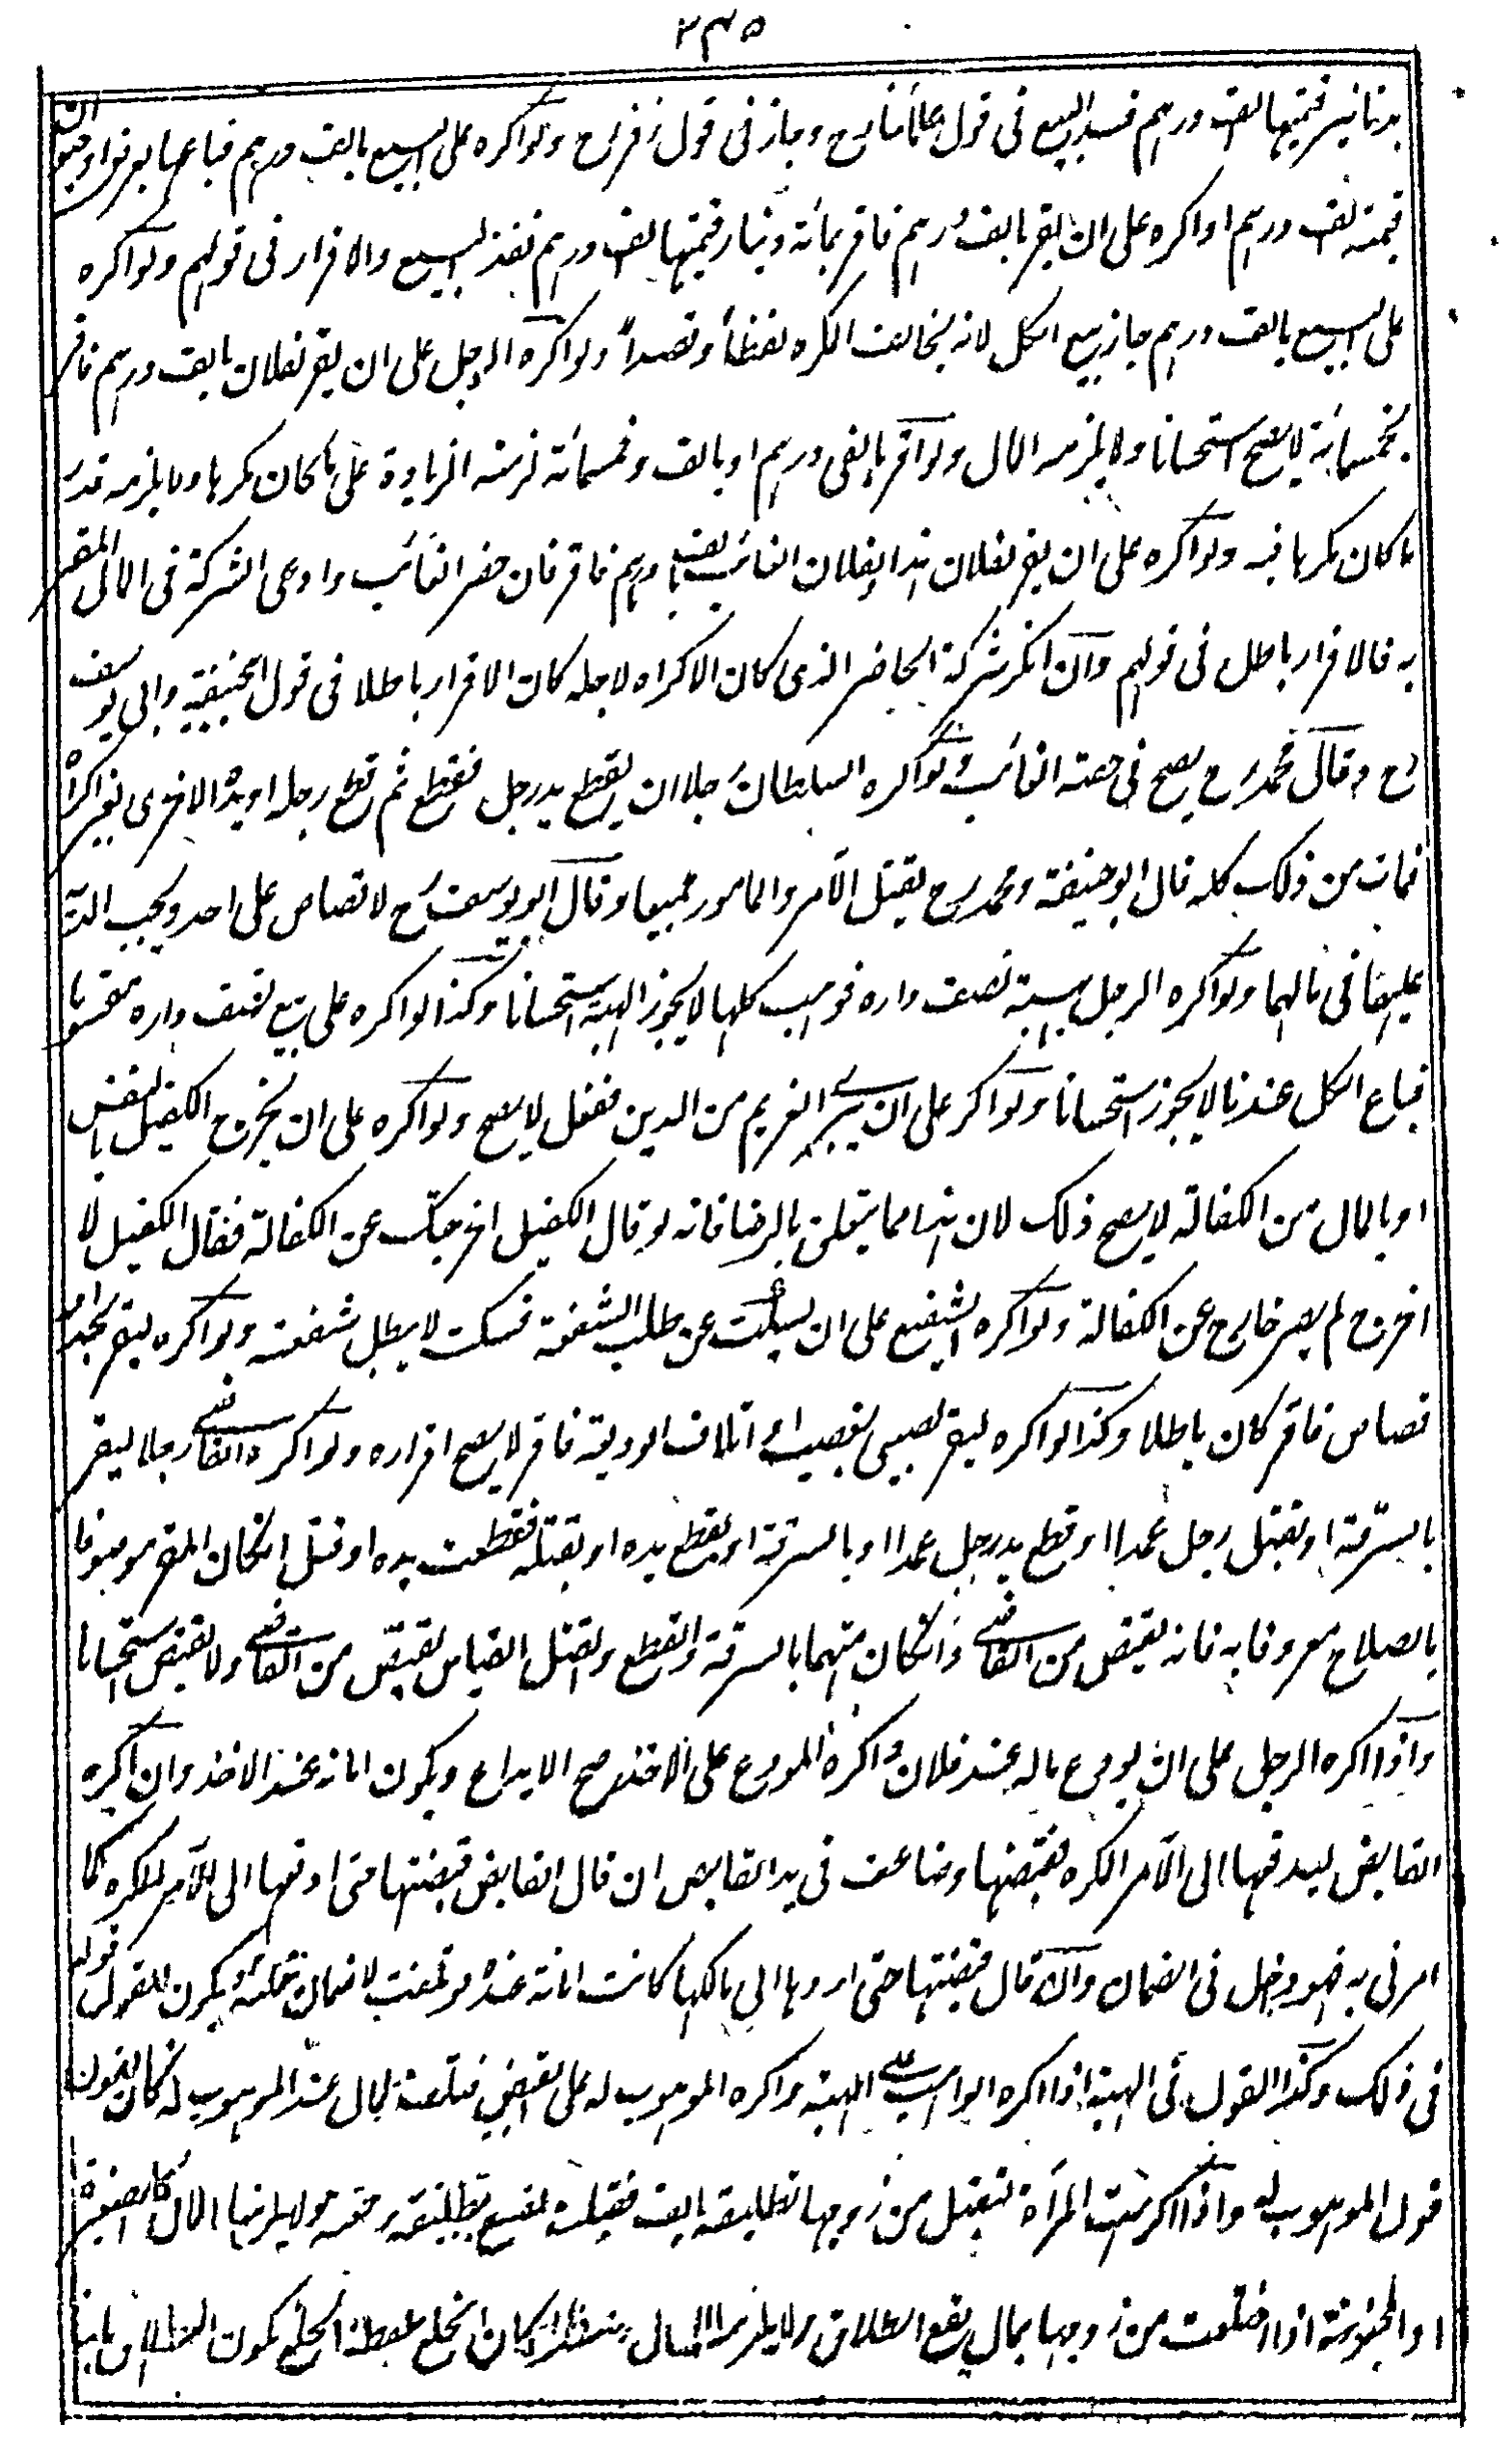 ٢٣٥
بدنانير قيمتها الف درهم فسد البيع في قول علمائنا رح وجاز في قول زفر رح ولو اكره على البيع بالف درهم فباعها بعرض او حيوان
قيمته الف درهم او اكره على ان يقر بالف درهم فاقر بمائة دينار قيمتها الف درهم نفذ البيع والاقرار في قولهم ولو اكره
على البيع بالف درهم جاز بيع الكل لانه يخالف المكره لفظا وقصدا ولو اكره الرجل على ان يقر لفلان بالف درهم فاقر
بخمسمائة لا يصح استحسانا ولا يلزمه المال ولو اقر بالفي درهم او بالف وخمسمائة لزمته الزيادة على ما كان مكرها ولا يلزمه قدر
ما كان مكرها فيه ولو اكره على ان يقر لفلان هذا ولفلان الغائب بالف درهم فاقر فان حضر الغائب وادعى الشركة في المال المقر
به فالاقرار باطل في قولهم وان انكر شركة الحاضر الذي كان الاكراه لاجله كان الاقرار باطلا في قول ابيحنيفة وابي يوسف
رح وقال محمد رح يصح في حصة الغائب ولو اكره السلطان رجلا ان يقطع يد رجل فقطع ثم قطع رجله او يده الاخرى بغير اكراه
فمات من ذلك كله قال ابو حنيفة ومحمد رح يقتل الآمر والمامور جميعا وقال ابو يوسف رح لا قصاص على احد ويجب الدية
عليهما في مالهما ولو اكره الرجل بهبة نصف داره فوهب كلها لا يجوز الهبة استحسانا وكذا لو اكره على بيع نصف داره مقسوما
فباع الكل عندنا لا يجوز استحسانا ولو اكر على ان يبرئ الغريم من الدين ففعل لا يصح ولو اكره على ان يخرج الكفيل بالنفس
او بالمال من الكفالة لا يصح ذلك لان هذا مما يتعلق بالرضا فانه لو قال الكفيل اخرجتك عن الكفالة فقال الكفيل لا
اخرج لم يصر خارج عن الكفالة ولو اكره الشفيع على ان يسكت عن طلب الشفعة فسكت لا يبطل شفعته ولو اكره ليقر بحد او
قصاص فاقر كان باطلا وكذا لو اكره ليقر لصبي بغصب او اتلاف الوديعة فاقر لا يصح اقراره ولو اكره القاضي رجلا ليقر
بالسرقة او بقتل رجل عمدا او قطع يد رجل عمدا او بالسرقة او بقطع يده او بقتله فقطعت يده او قتل انكان المقر موصوفا
بالصلاح معروفا به فانه يقتص من القاضي وانكان متهما بالسرقة والقطع والقتل القياس يقتص من القاضي ولا يقتص استحسانا
واذا اكره الرجل على ان يودع ماله عند فلان واكره المودع على الاخذ صح الايداع ويكون امانة عند الاخذ وان اكره
القابض ليدفعها الى الآمر المكره فقبضها وضاعت في يد القابض ان قال القابض قبضتها حتى ادفعها الى الآمر المكره كما
امرني به فهو دخل في الضمان وان قال قبضتها حتى اردها الى مالكها كانت امانة عنده وتلفت لا ضمان عليه ويكون القول قوله
في ذلك وكذا القول في الهبة اذا اكره الواهب على الهبة واكره الموهوب له على القبض فتلفت المال عند الموهوب له كان القول
قول الموهوب له واذا اكرهت المرأة لتقبل من زوجها تطليقة بالف فقبلت تقع تطليقة رجعية ولا يلزمها المال كالصغيرة
او المجنونة اذا اختلعت من زوجها بمال يقع الطلاق ولا يلزمها المال انكان الخلع بلفظة الخلع يكون الطلاق بائنا